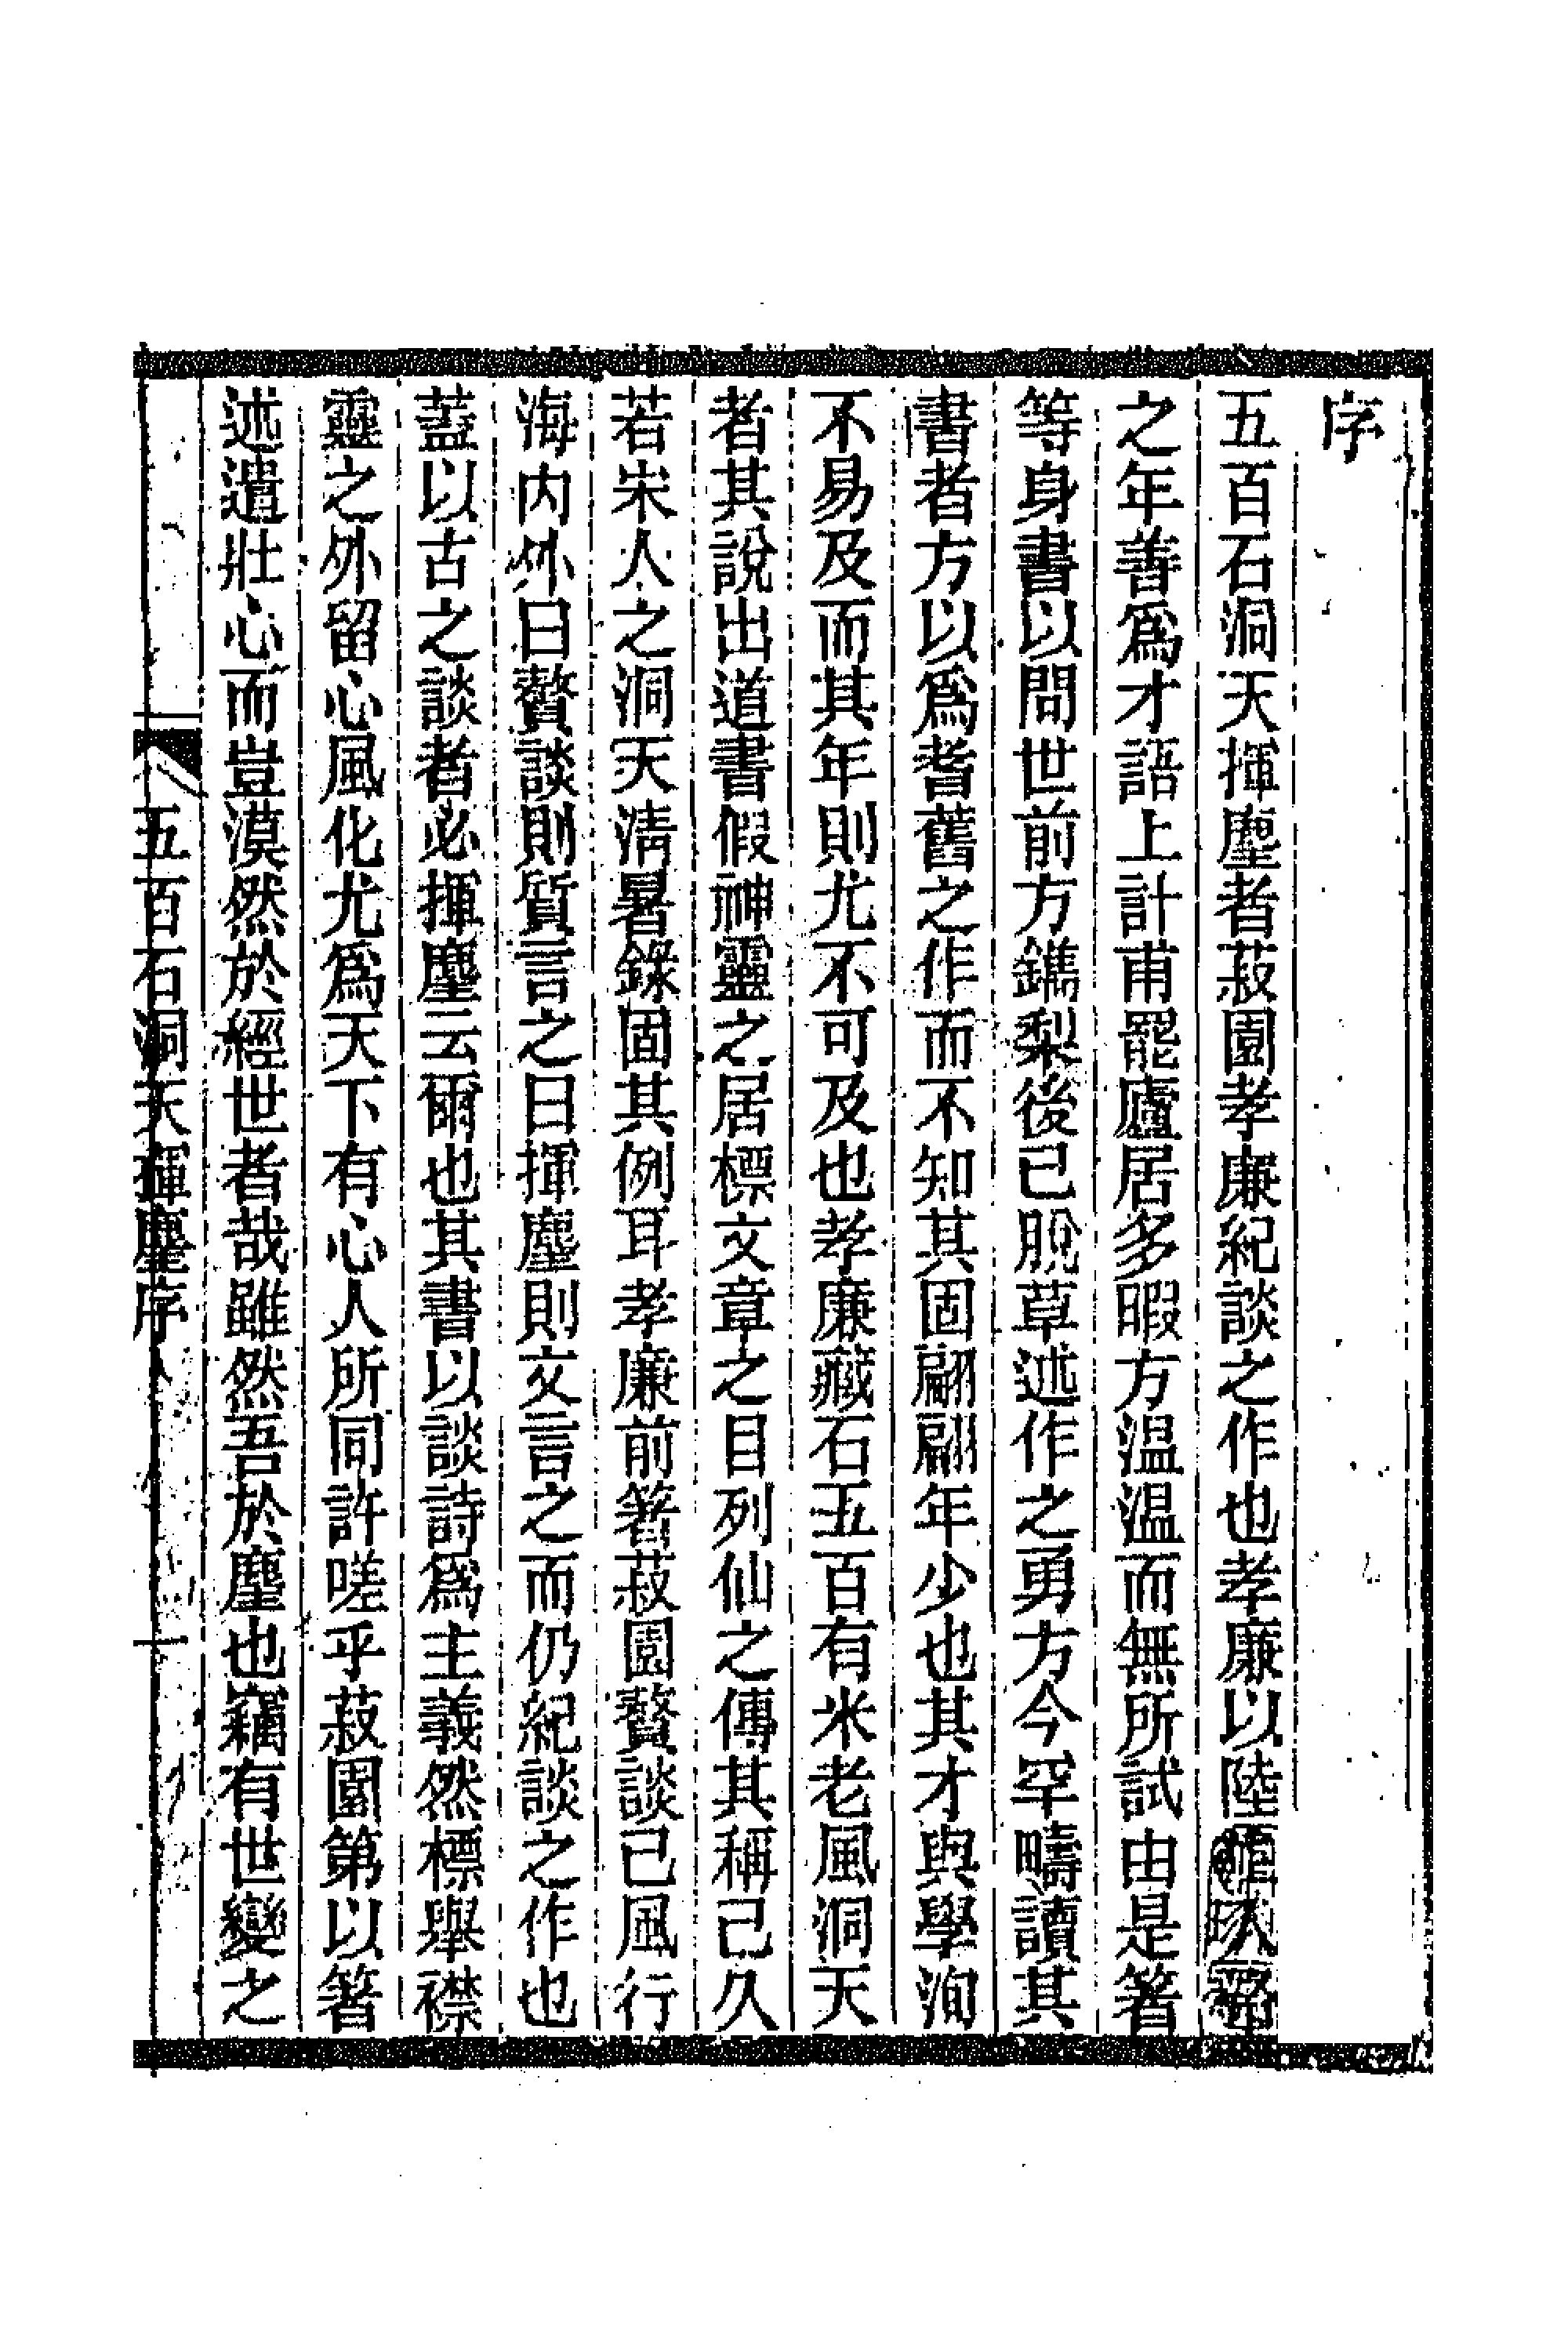 序
五百石洞天揮麈者菽園孝廉紀談之作也孝廉以陸
之年善爲才語上計甫罷廬居多暇方温温而無所試由是箸
等身書以問世前方鐫梨後已脫草述作之勇方今罕疇讀其
書者方以爲耆舊之作而不知其固翩翩年少也其才與學洵
不易及而其年則尤不可及也孝廉藏石五百有米老風洞天
者其說出道書假神靈之居標文章之目列仙之傳其稱已久
若宋人之洞天淸暑錄固其例耳孝廉前箸菽園贅談已風行
海內外曰贅談則質言之曰揮麈則文言之而仍紀談之作也
蓋以古之談者必揮麈云爾也其書以談詩爲主義然標舉襟
靈之外留心風化尤爲天下有心人所同許嗟乎菽園第以箸
述遣壯心而豈漠然於經世者哉雖然吾於麈也竊有世變之
五百石洞天揮麈序 一